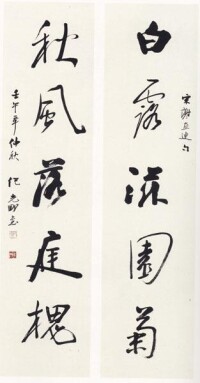 宋謝惠連句
白露滋園菊
秋風落庭槐
壬午年仲秋